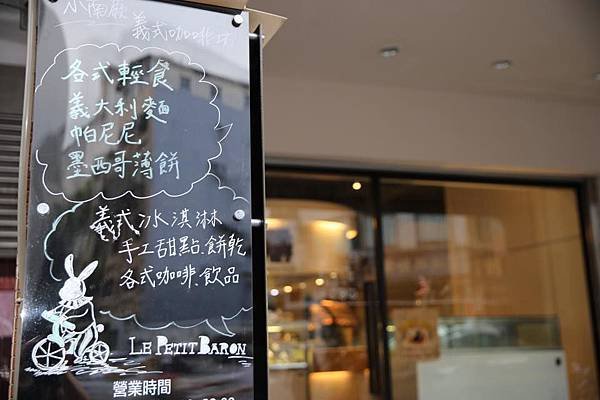 義式咖啡坊
各式輕食
義大利麵
帕尼尼
墨西哥薄餅
義式冰淇淋
手工甜點.餅乾
各式咖啡.飲品
LE PETIT BARON
營業時間